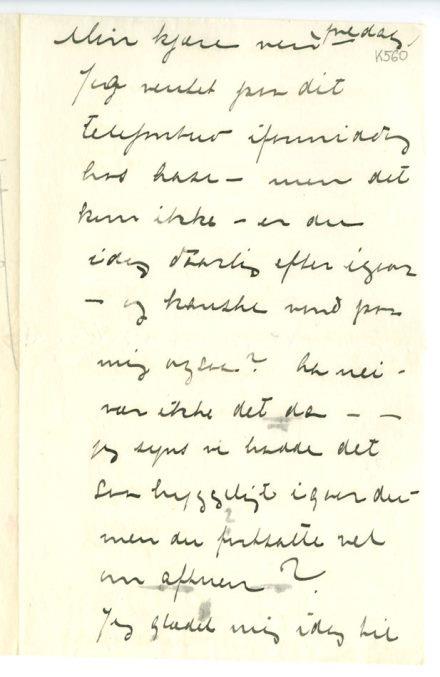 Min kjære ven! fredag
K560
Jeg ventet paa dit
telefonbud iformiddag
hos hase – men det
kom ikke – er du
idag daarlig efter igaar
– og kanske vond paa
mig ogsaa? Aa nei –
vær ikke det da – –
jeg syns vi hadde det
saa hyggeligt igaar du –
men du fortsatte vel
om aftnen?
Jeg glædet mig idag til